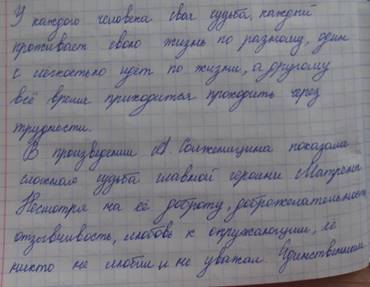 У каждого человека своя судьба, каждый
проживает свою жизнь по разному, один
с легкостью идёт по жизни, а другому
всё время приходится проходить через
трудности.
В произведении А. Солженицина показана
сложная судьба главной героини Матрёны.
Несмотря на её доброту, доброжелательность,
отзывчивость, любовь к окружающим, её
никто не любил и не уважал. Единственным